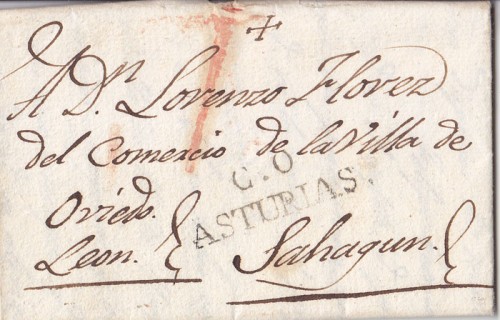 +
A Dn Lorenzo Florez
del Comercio de la Villa de
Oviedo.
G.O
ASTURIAS.
Leon. Sahagun.